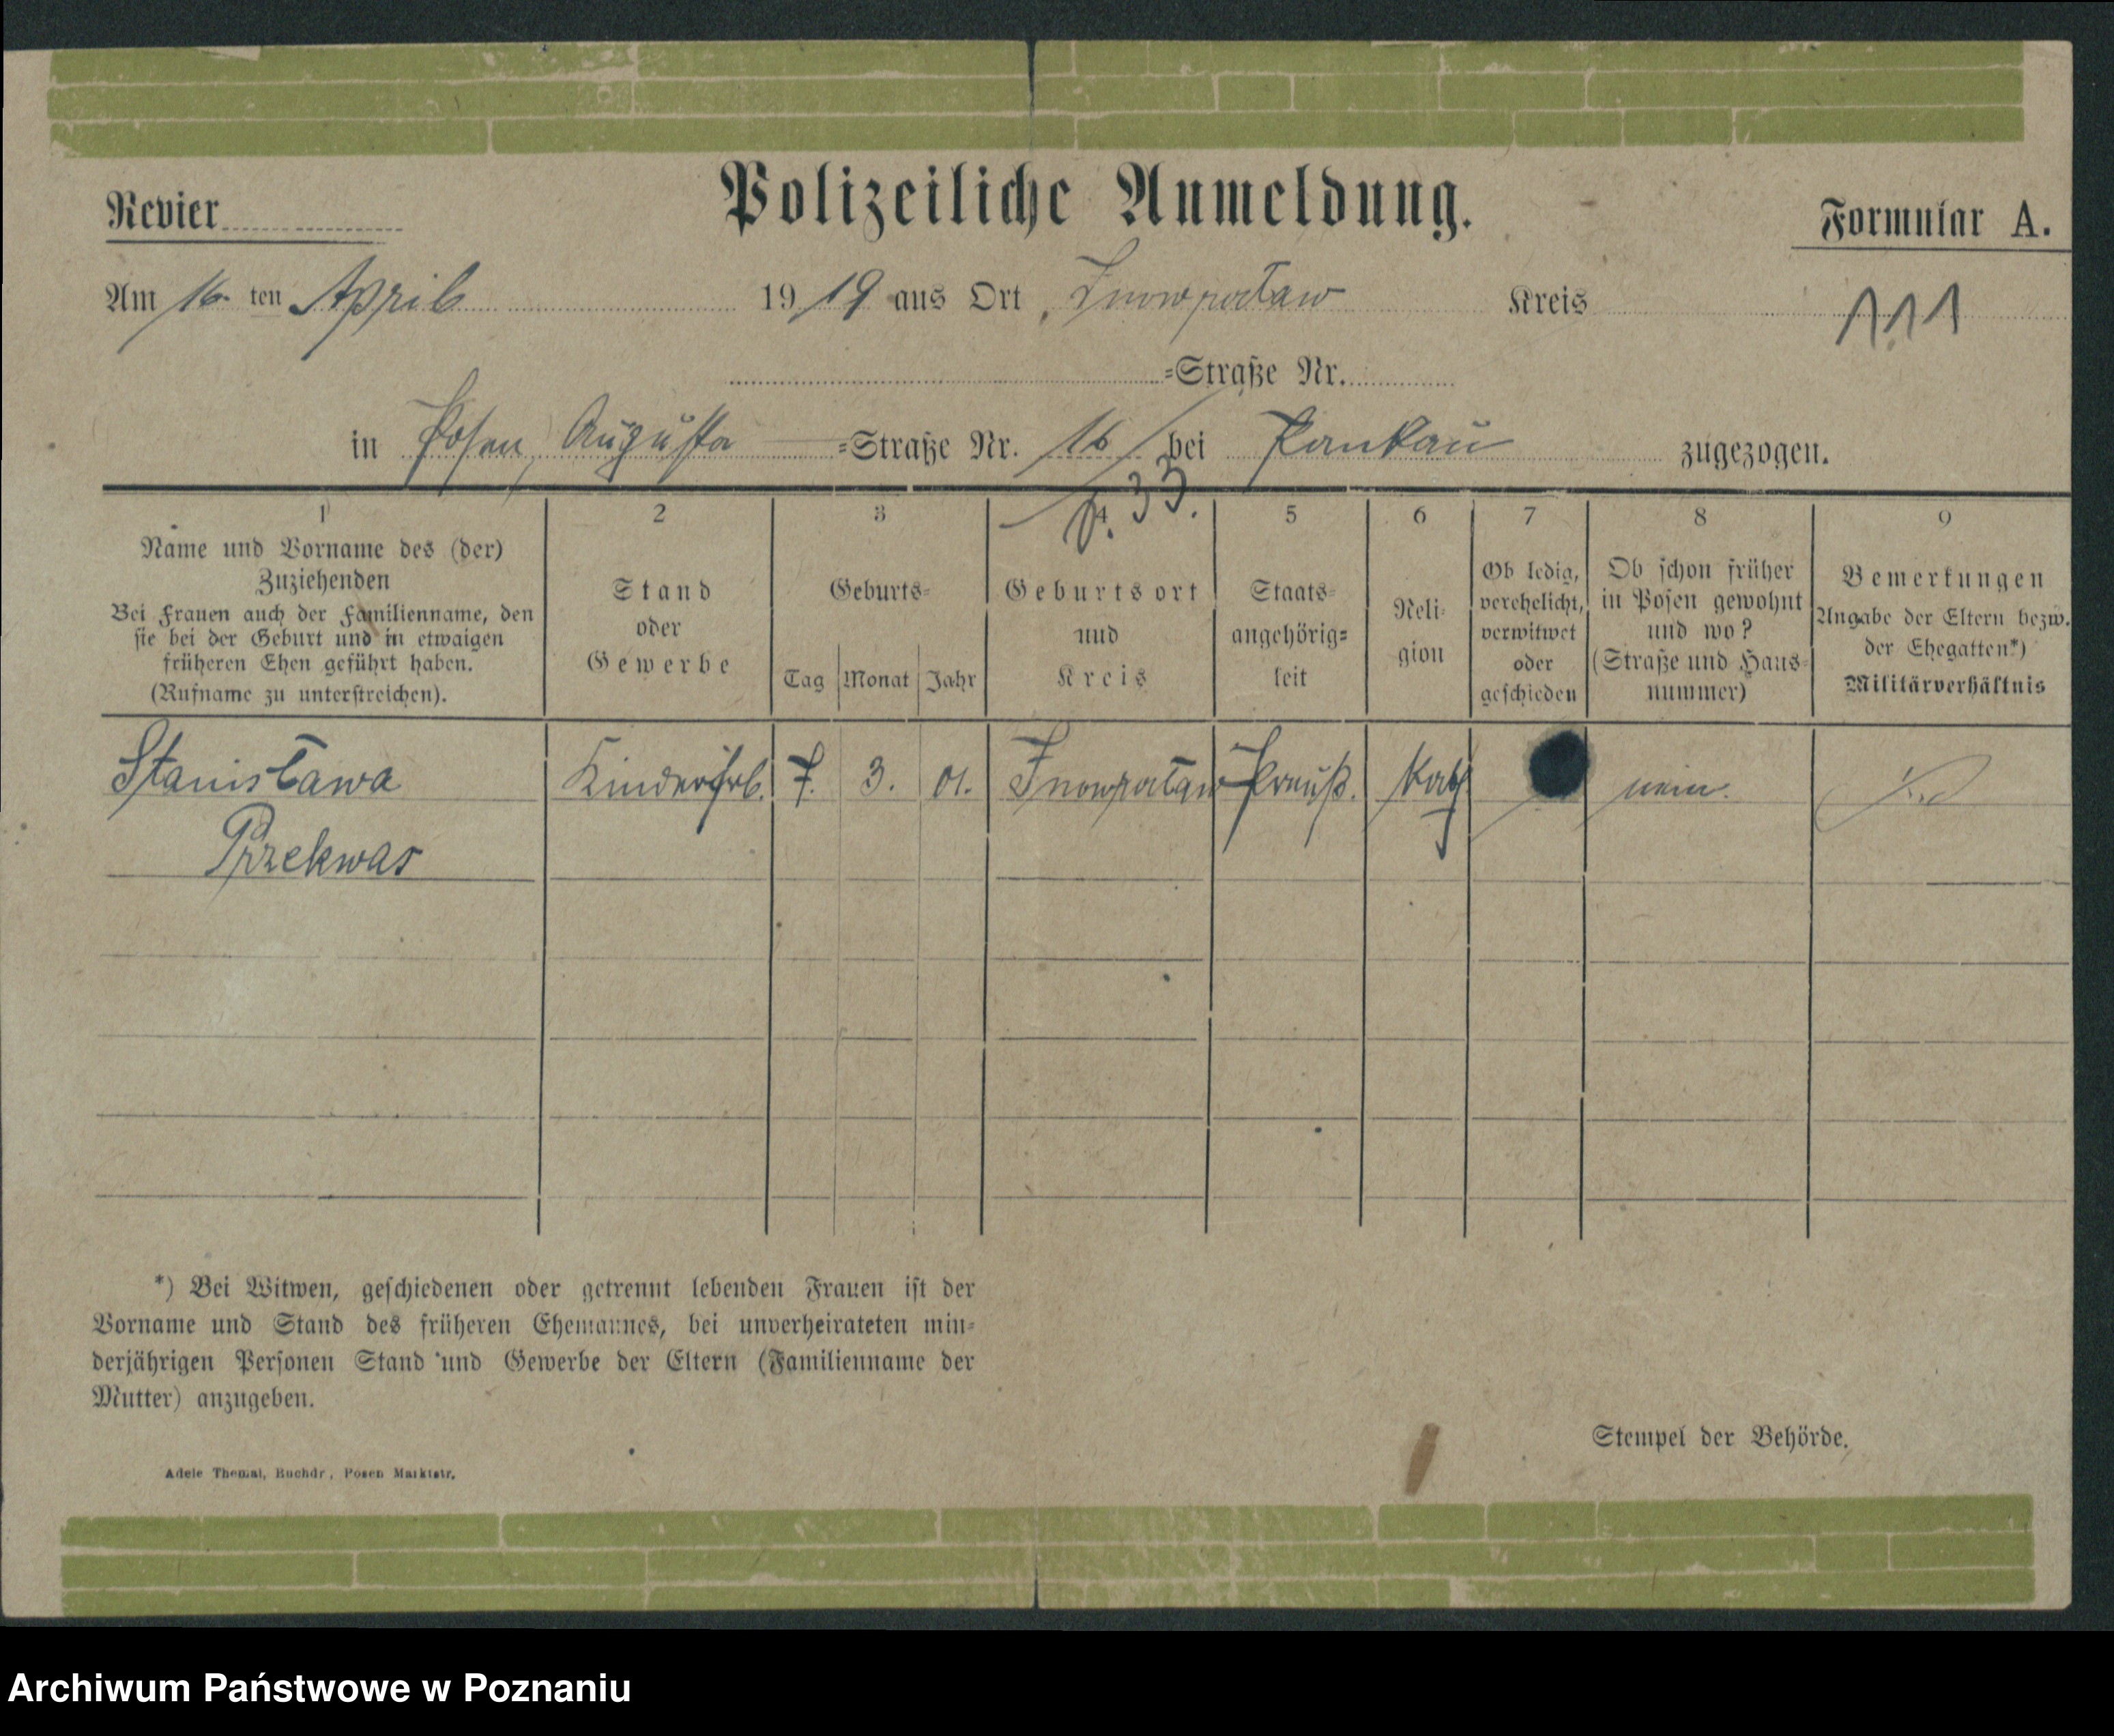 Revier
Polizeiliche Anmeldung.
Formular A.
Am 16. ten April 1919 aus Ort Inowrocław Kreis
111
=Straße Nr.
in Posen, Augusta =Straße Nr. 16 bei Pankau zugezogen.
33.
1 2 3 4 5 6 7 8 9
Name und Vorname des (der)
Zuziehenden
Bei Frauen auch der Familienname, den
sie bei der Geburt und in etwaigen
früheren Ehen geführt haben.
(Rufname zu unterstreichen).
Stand
oder
Gewerbe
Geburts=
Tag Monat Jahr
Geburtsort
und
Kreis
Staats=
angehörig=
keit
Reli=
gion
Ob ledig,
verehelicht,
verwitwet
oder
geschieden
Ob schon früher
in Posen gewohnt
und wo?
(Straße und Haus=
nummer)
Bemerkungen
Angabe der Eltern bezw.
der Ehegatten*)
Militärverhältnis
Stanisława 7. 3. 01. Inowrocław Preuß. Kath nein.
Przekwas
*) Bei Witwen, geschiedenen oder getrennt lebenden Frauen ist der
Vorname und Stand des früheren Ehemannes, bei unverheirateten min=
derjährigen Personen Stand und Gewerbe der Eltern (Familienname der
Mutter) anzugeben.
Stempel der Behörde.
Adele Themal, Buchdr, Posen Marktstr.
Archiwum Państwowe w Poznaniu